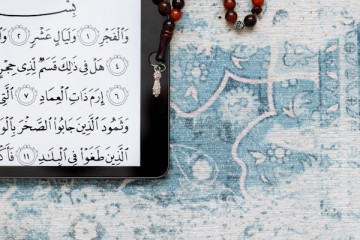 بِسْـ
وَٱلْفَجْرِ ١ وَلَيَالٍ عَشْرٍ ٢
٤ هَلْ فِى ذَٰلِكَ قَسَمٌ لِّذِى حِجْرٍ
٦ إِرَمَ ذَاتِ ٱلْعِمَادِ ٧ ٱلَّتِى
وَثَمُودَ ٱلَّذِينَ جَابُوا۟ ٱلصَّخْرَ بِٱلْوَ
ٱلَّذِينَ طَغَوْا۟ فِى ٱلْبِلَٰدِ ١١ فَأَكْـ